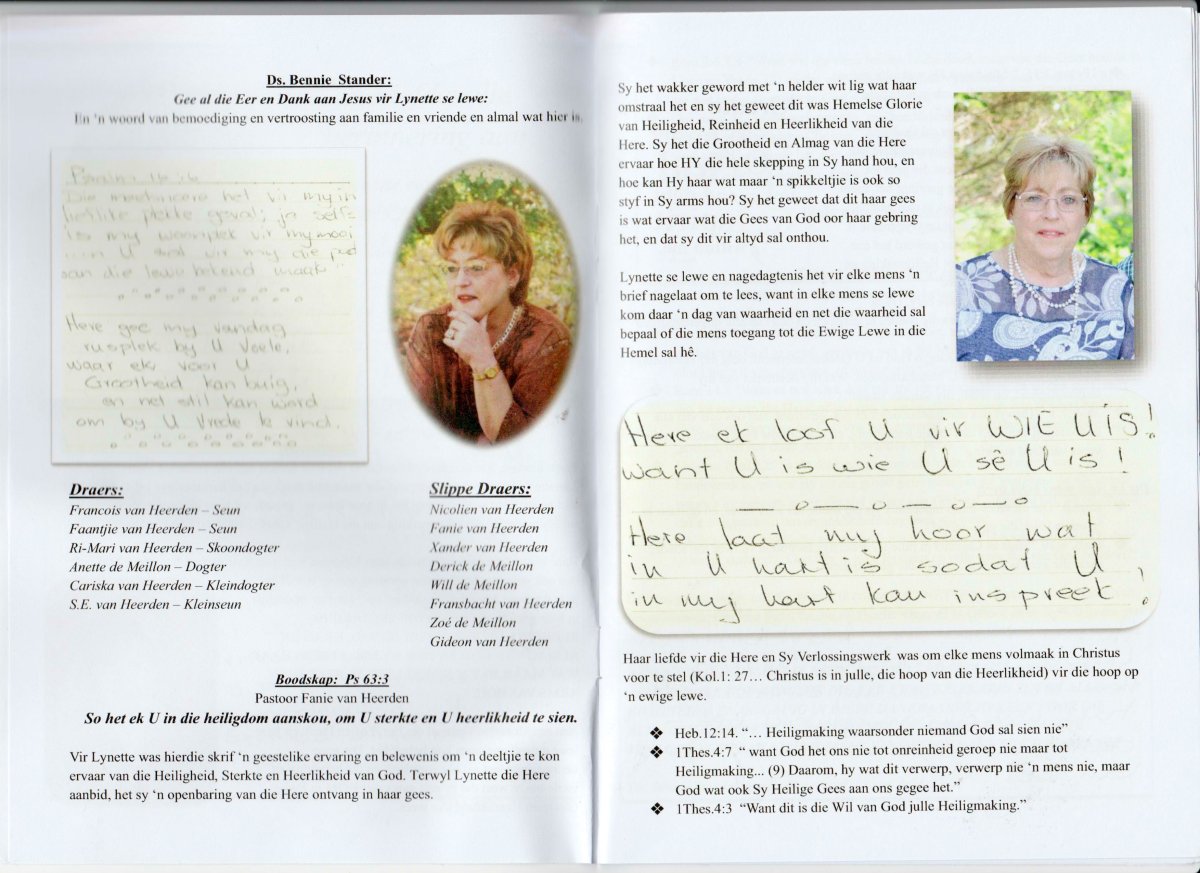 Ds. Bennie Stander:
Gee al die Eer en Dank aan Jesus vir Lynette se lewe:
En ‘n woord van bemoediging en vertroosting aan familie en vriende en almal wat hier is.
Psalm 16:6
Die meetsnoere het vir my in
lieflike plekke geval; ja selfs
is my woonplek vir my mooi
U sal vir my die pad
van die lewe bekend maak"
Here gee my vandag
rusplek by U Voete,
waar ek voor U
Grootheid kan buig,
en net stil kan word
om by U Vrede te vind.
Draers:
Francois van Heerden – Seun
Faantjie van Heerden – Seun
Ri-Mari van Heerden – Skoondogter
Anette de Meillon – Dogter
Cariska van Heerden – Kleindogter
S.E. van Heerden – Kleinseun
Slippe Draers:
Nicolien van Heerden
Fanie van Heerden
Xander van Heerden
Derick de Meillon
Will de Meillon
Fransbacht van Heerden
Zoé de Meillon
Gideon van Heerden
Boodskap: Ps 63:3
Pastoor Fanie van Heerden
So het ek U in die heiligdom aanskou, om U sterkte en U heerlikheid te sien.
Vir Lynette was hierdie skrif ‘n geestelike ervaring en belewenis om ‘n deeltjie te kon
ervaar van die Heiligheid, Sterkte en Heerlikheid van God. Terwyl Lynette die Here
aanbid, het sy ‘n openbaring van die Here ontvang in haar gees.
Sy het wakker geword met ‘n helder wit lig wat haar
omstraal het en sy het geweet dit was Hemelse Glorie
van Heiligheid, Reinheid en Heerlikheid van die
Here. Sy het die Grootheid en Almag van die Here
ervaar hoe HY die hele skepping in Sy hand hou, en
hoe kan Hy haar wat maar ‘n spikkeltjie is ook so
styf in Sy arms hou? Sy het geweet dat dit haar gees
is wat ervaar wat die Gees van God oor haar gebring
het, en dat sy dit vir altyd sal onthou.
Lynette se lewe en nagedagtenis het vir elke mens ‘n
brief nagelaat om te lees, want in elke mens se lewe
kom daar ‘n dag van waarheid en net die waarheid sal
bepaal of die mens toegang tot die Ewige Lewe in die
Hemel sal hê.
Here ek loof U vir WIE U IS!
want U is wie U sê U is!
Here laat my hoor wat
in U hart is sodat U
in my hart kan inspreek!
Haar liefde vir die Here en Sy Verlossingswerk was om elke mens volmaak in Christus
voor te stel (Kol.1: 27… Christus is in julle, die hoop van die Heerlikheid) vir die hoop op
‘n ewige lewe.
❖ Heb.12:14. “… Heiligmaking waarsonder niemand God sal sien nie”
❖ 1Thes.4:7 “ want God het ons nie tot onreinheid geroep nie maar tot
Heiligmaking... (9) Daarom, hy wat dit verwerp, verwerp nie ‘n mens nie, maar
God wat ook Sy Heilige Gees aan ons gegee het.”
❖ 1Thes.4:3 “Want dit is die Wil van God julle Heiligmaking.”